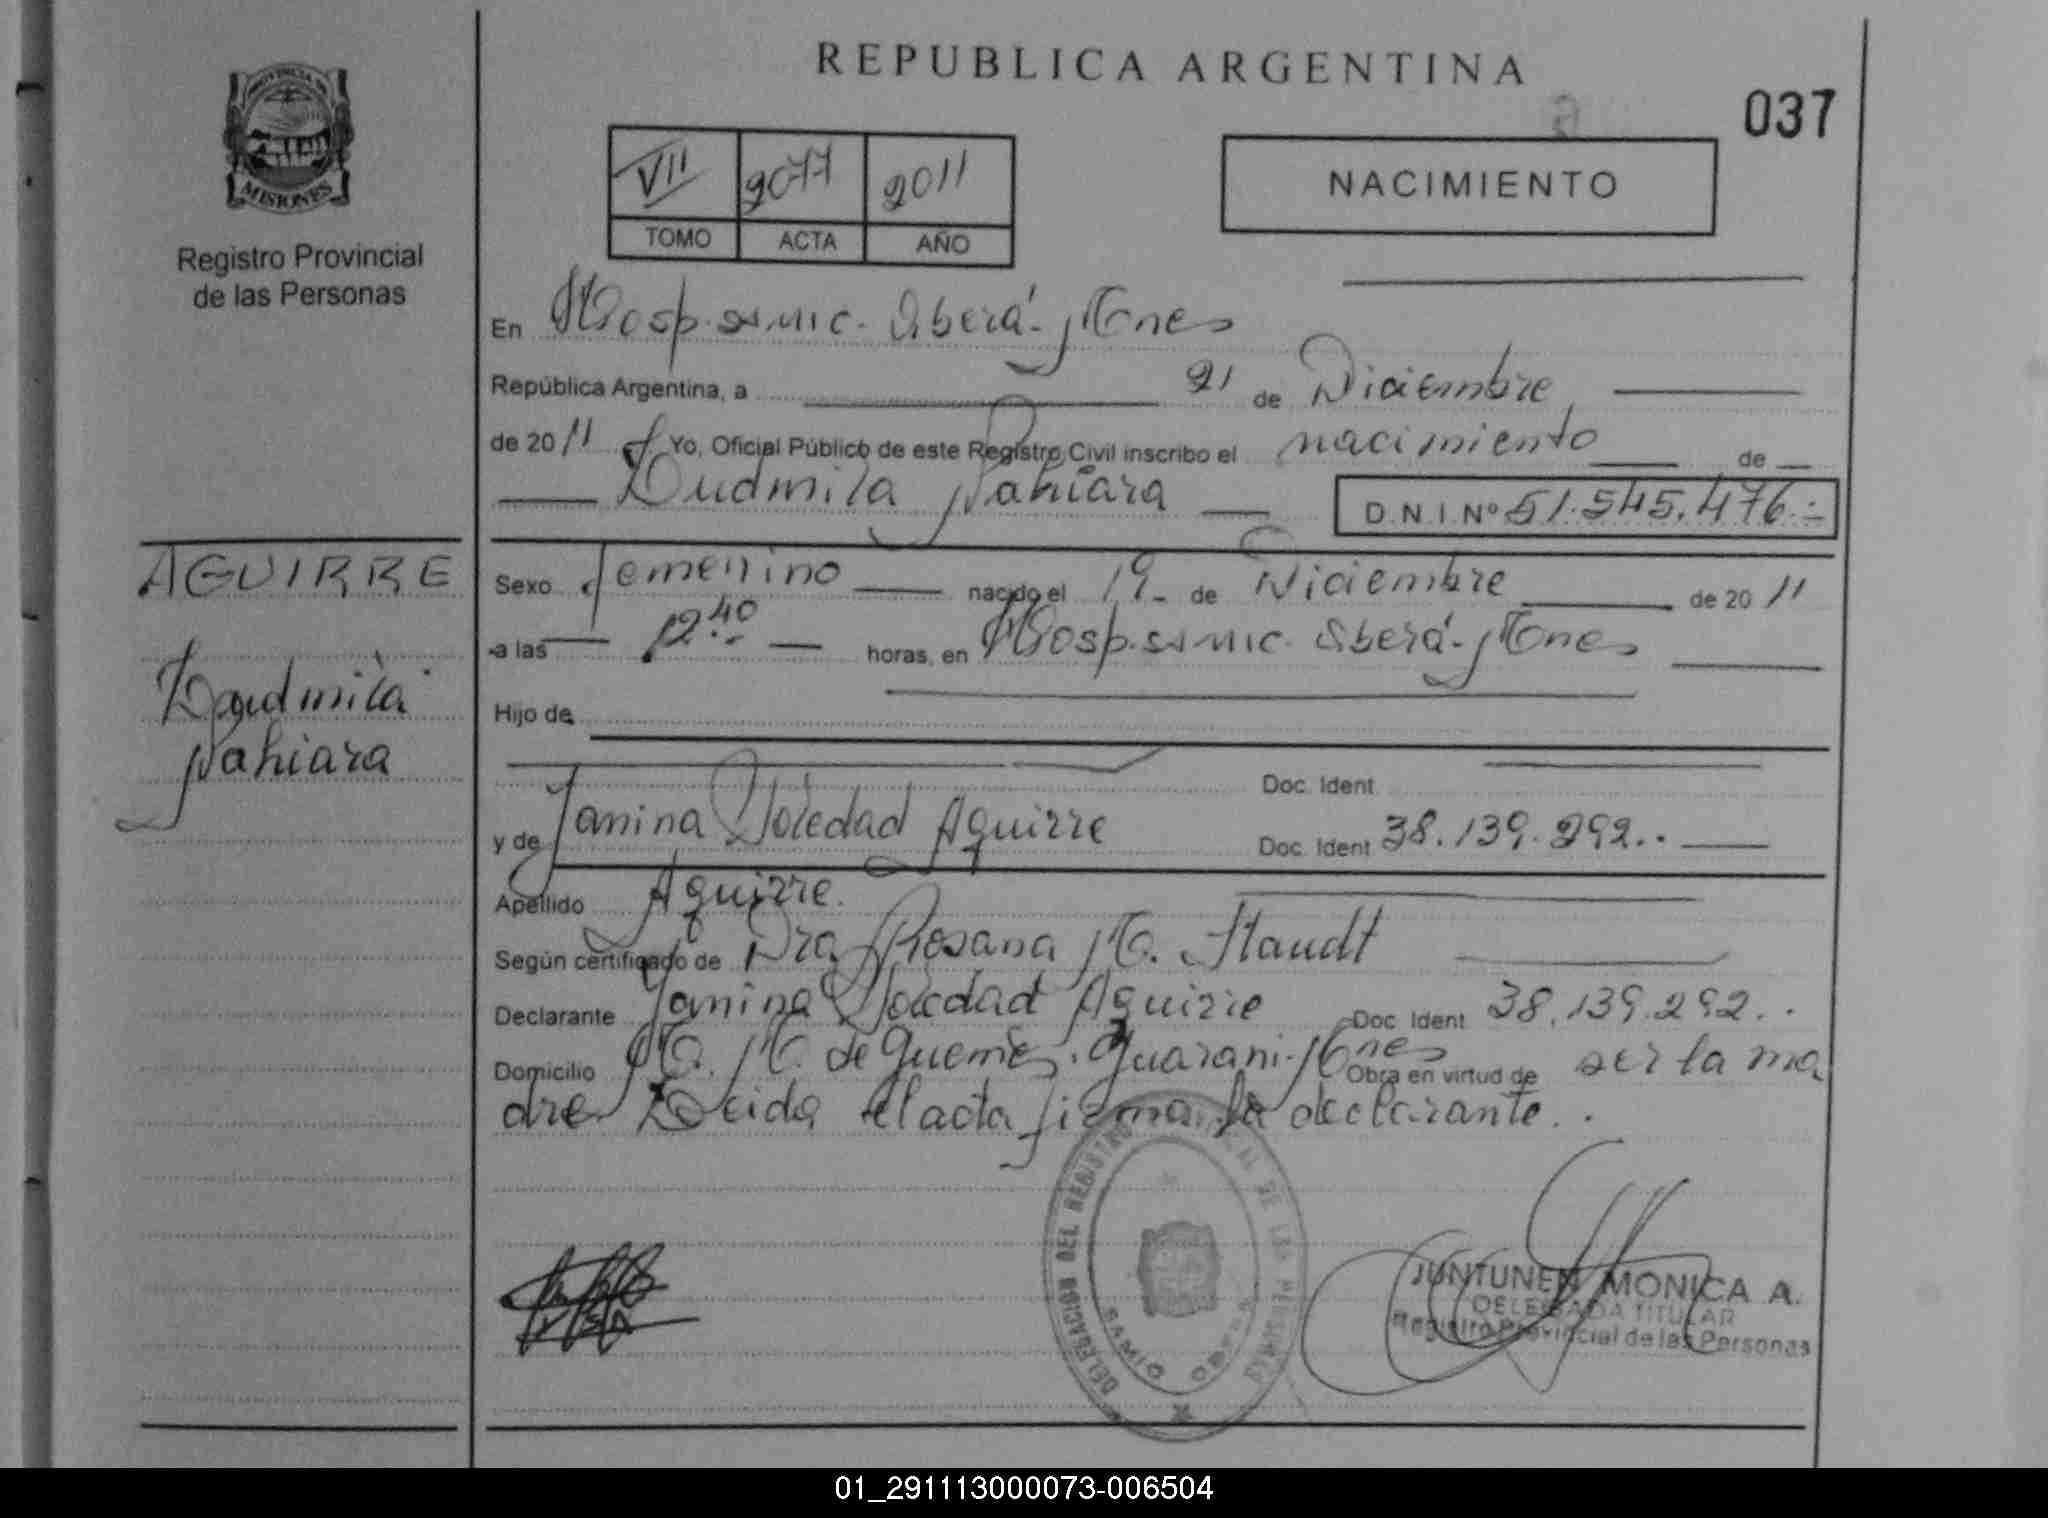 REPUBLICA ARGENTINA
037
PROVINCIA DE
MISIONES
Registro Provincial
de las Personas
VII 2077 2011
TOMO ACTA AÑO
NACIMIENTO
En Hosp. samic. Oberá - Mnes
República Argentina, a 21 de Diciembre
de 2011 Yo, Oficial Público de este Registro Civil inscribo el nacimiento de
Ludmila Nahiara D.N.I. Nº 51.545.476.-
AGUIRRE
Ludmila
Nahiara
Sexo femenino nacido el 19 - de Diciembre de 2011
a las 12.40 horas, en Hosp. samic. Oberá - Mnes
Hijo de
Doc. Ident.
y de Yanina Soledad Aguirre Doc. Ident 38.139.292..
Apellido Aguirre.
Según certificado de Dra Rosana M. Staudt
Declarante Yanina Soledad Aguirre Doc. Ident 38.139.292..
Domicilio M. M. de Guemes. Guarani - Mnes Obra en virtud de ser la ma
dre Leida el acta firma la declarante..
DELEGACION DEL REGISTRO PROVINCIAL DE LAS PERSONAS
SAMIC OBERA
JUNTUNEN MONICA A.
DELEGADA TITULAR
Registro Provincial de las Personas
01_291113000073-006504